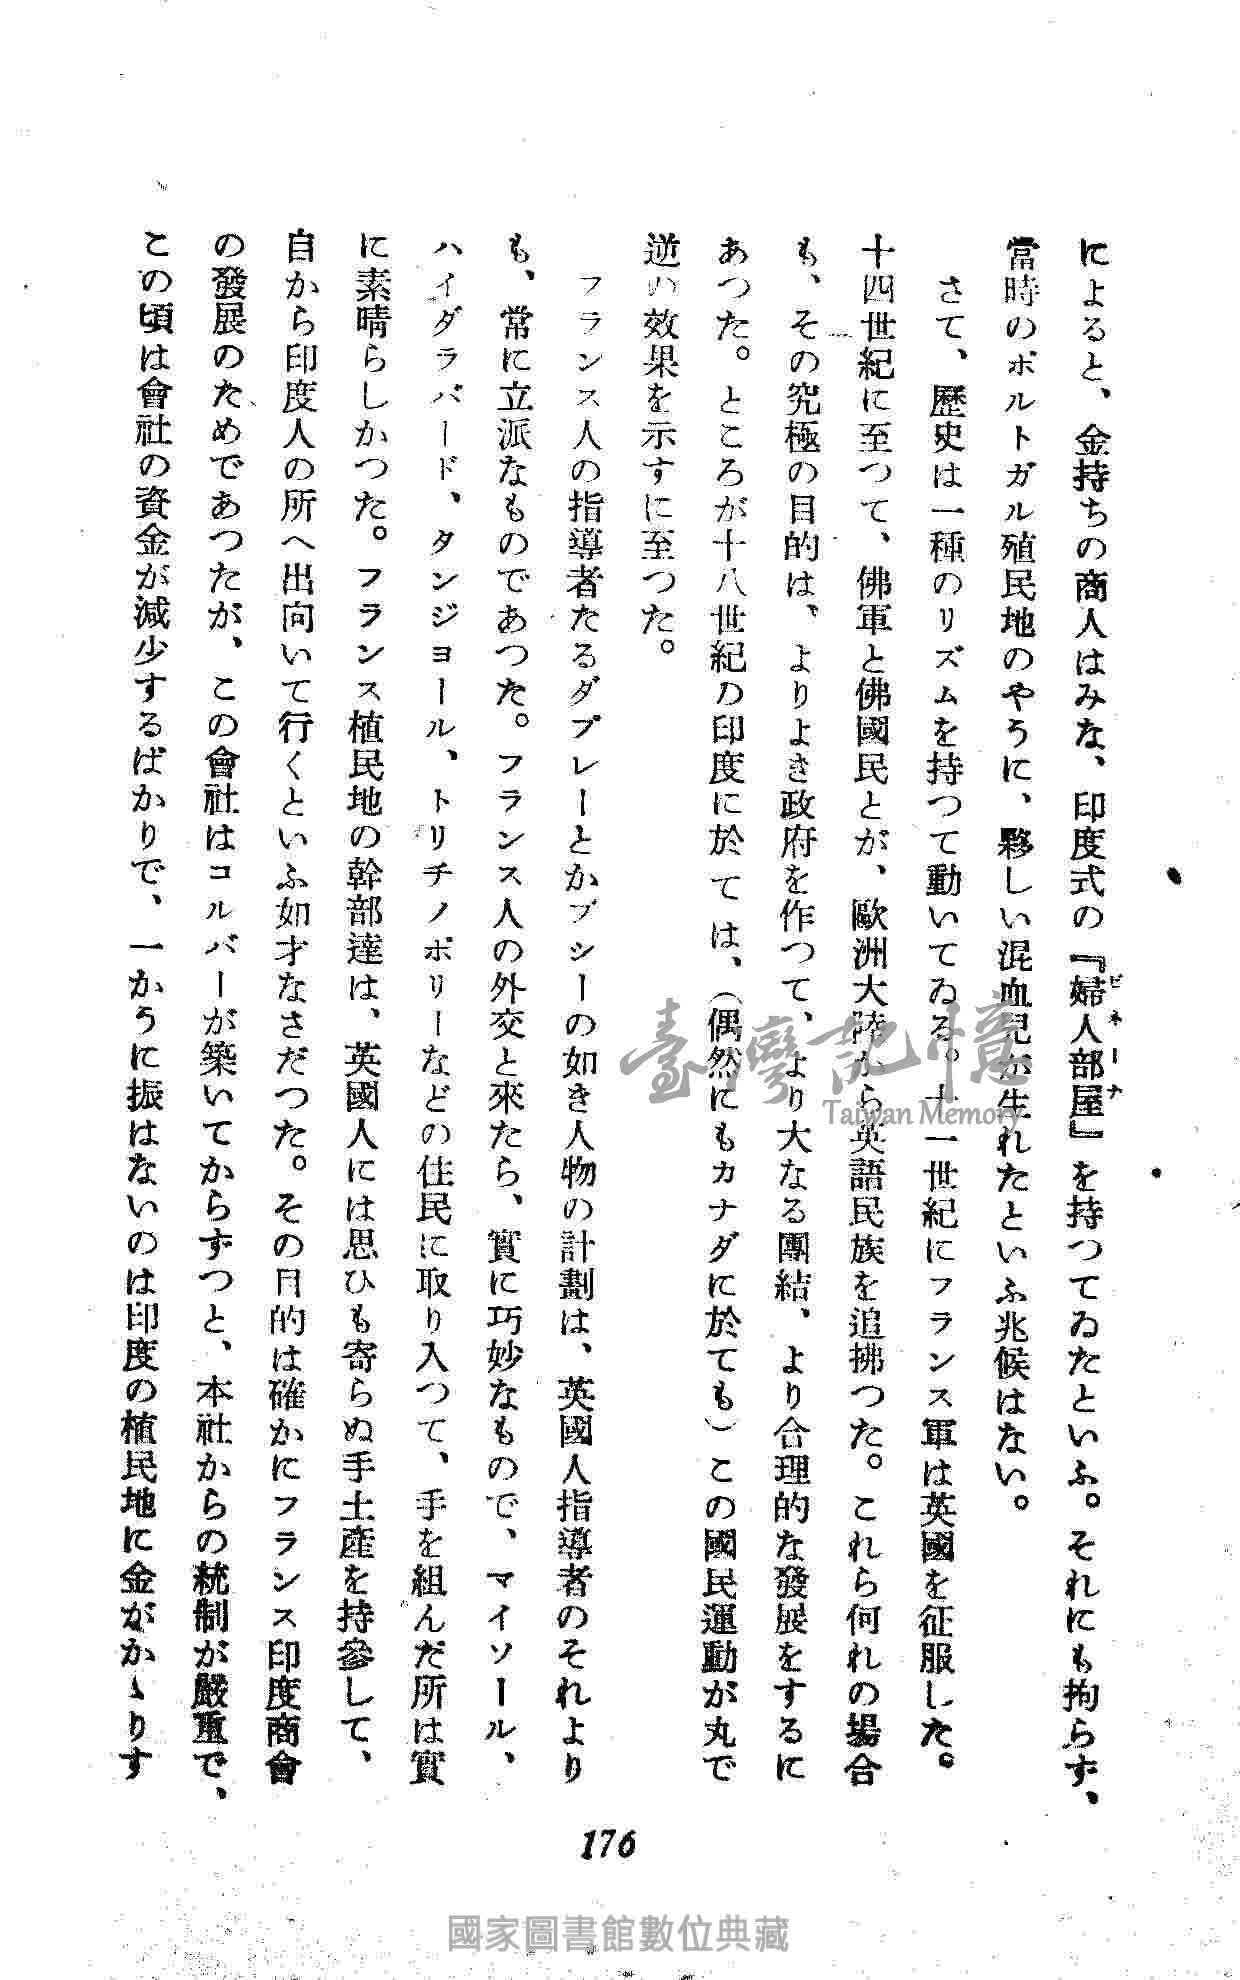 によると、金持ちの商人はみな、印度式の『婦人部屋』を持つてゐたといふ。それにも拘らず、
ビネーナ
當時のポルトガル殖民地のやうに、夥しい混血兒が生れたといふ兆候はない。
さて、歷史は一種のリズムを持つて動いてゐる。十一世紀にフランス軍は英國を征服した。
十四世紀に至つて、佛軍と佛國民とが、歐洲大陸から英語民族を追拂つた。これら何れの場合
も、その究極の目的は、よりよき政府を作つて、より大なる團結、より合理的な發展をするに
あつた。ところが十八世紀の印度に於ては、(偶然にもカナダに於ても)この國民運動が丸で
逆の效果を示すに至つた。
フランス人の指導者たるダプレーとかブシーの如き人物の計劃は、英國人指導者のそれより
も、常に立派なものであつた。フランス人の外交と來たら、實に巧妙なもので、マイソール、
ハイダラバード、タンジヨール、トリチノポリーなどの住民に取り入つて、手を組んだ所は實
に素晴らしかつた。フランス植民地の幹部達は、英國人には思ひも寄らぬ手土產を持參して、
自から印度人の所へ出向いて行くといふ如才なさだつた。その目的は確かにフランス印度商會
の發展のためであつたが、この會社はコルバーが築いてからずつと、本社からの統制が嚴重で、
この頃は會社の資金が減少するばかりで、一かうに振はないのは印度の植民地に金がかゝりす
176
臺灣記憶
Taiwan Memory
國家圖書館數位典藏